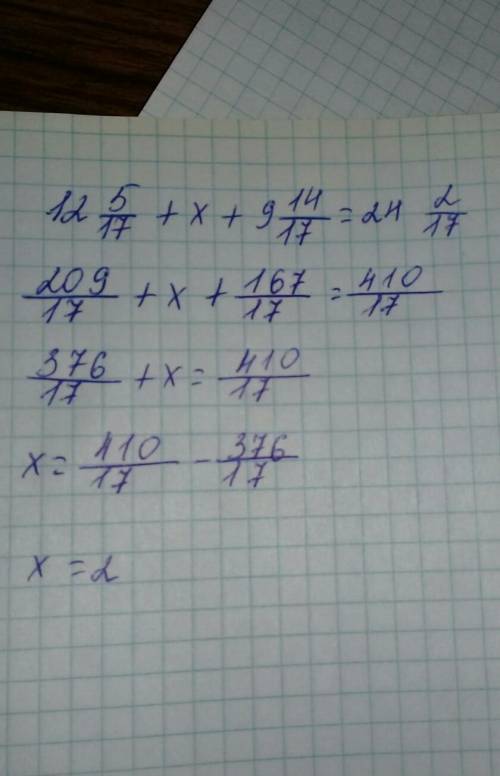 12 5/17 + x + 9 14/17 = 24 2/17
209/17 + x + 167/17 = 410/17
376/17 + x = 410/17
x = 410/17 - 376/17
x = 2